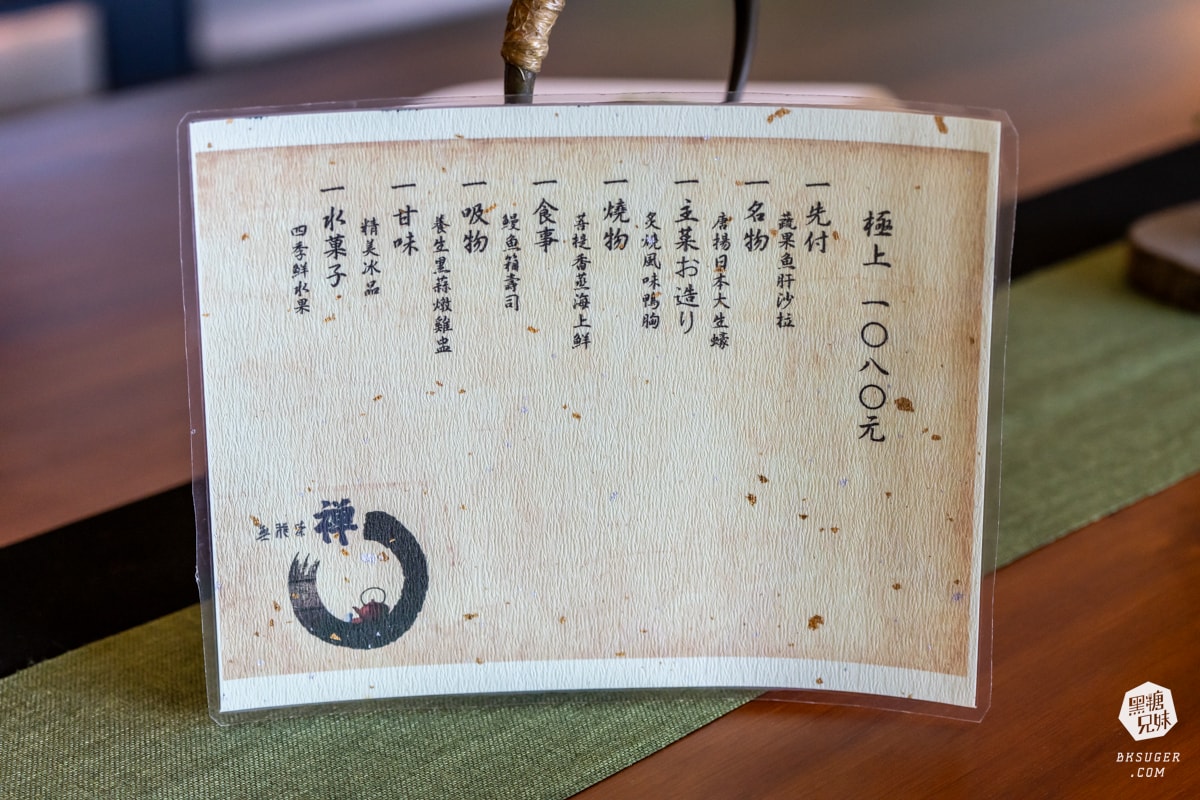 極上 一〇八〇元
一先付
蔬果魚肝沙拉
一名物
唐揚日本大生蠔
一主菜お造り
炙燒風味鴨胸
一燒物
菩提香蒸海上鮮
一食事
鰻魚箱壽司
一吸物
養生黑蒜燉雞盅
一甘味
精美冰品
一水菓子
四季鮮水果
禪
黑糖
兄妹
BKSUGER
.COM